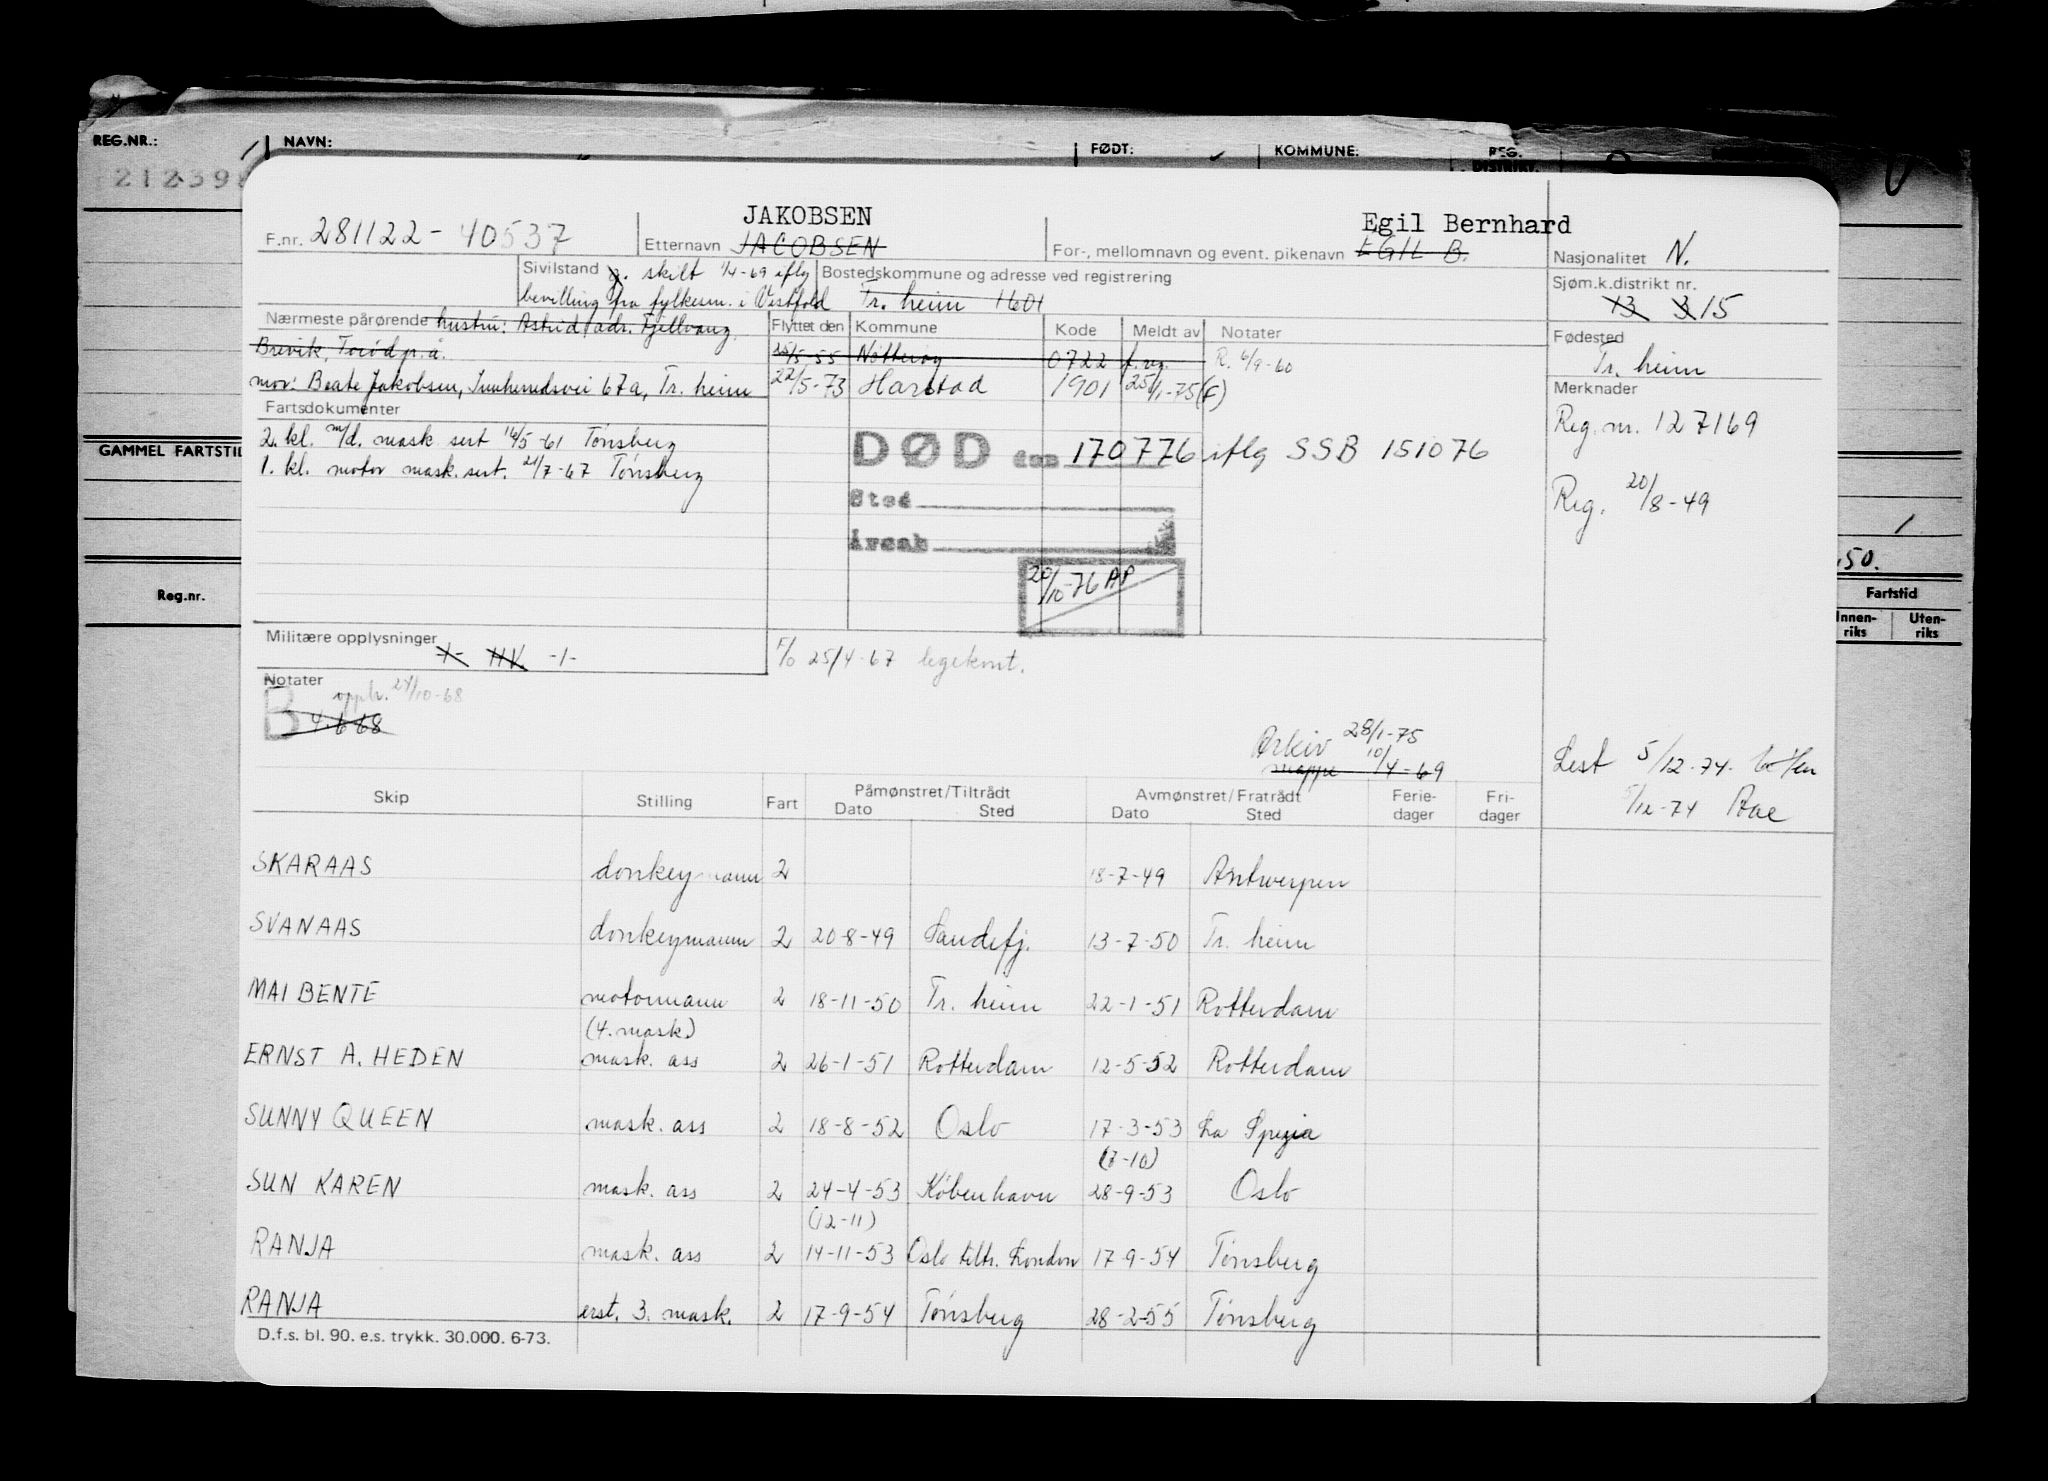 REG.NR.: NAVN: FØDT: KOMMUNE: REG. DISTRIKT.
21239
JAKOBSEN Egil Bernhard
F.nr. 281122-40537 Etternavn JACOBSEN For-, mellomnavn og event. pikenavn EGIL B. Nasjonalitet N.
Sivilstand g. skilt 1/4-69 iflg Bostedskommune og adresse ved registrering Sjøm.k.distrikt nr.
bevilling fra fylkesm. i Vestfold Tr. heim 1601 13 3 15
Nærmeste pårørende hustru: Astrid, adr. Fjellvang Flyttet den Kommune Kode Meldt av Notater Fødested
Brevik, Torød p.å. 25/5-55 Nøtterøy 0722 f.reg. R. 6/9-60 Tr. heim
mor: Beate Jakobsen, 67a, Tr. heim 22/5-73 Harstad 1901 25/1-75 (F) Merknader
Fartsdokumenter Reg. nr. 127169
2. kl. m/d. mask sert 16/5-61 Tønsberg DØD den 170776 iflg SSB 151076
1. kl. motor mask. sert. 21/7-67 Tønsberg
Sted Reg. 20/8-49
Årsak
GAMMEL FARTSTID
50.
20/10-76 AP
Reg.nr. Fartstid
Innen-riks Uten-riks
Militære opplysninger HV -1- F/O 25/4-67 legekont.
Notater opph. 24/10-68
B 4-6-68
Arkiv 28/1-75
mappe 10/4-69 Lest 5/12-74
/12-74 Aae
Skip Stilling Fart Påmønstret/Tiltrådt Avmønstret/Fratrådt Ferie-dager Fri-dager
Dato Sted Dato Sted
SKARAAS donkeymann 2 18-7-49 Antwerpen
SVANAAS donkeymann 2 20-8-49 Sandefj. 13-7-50 Tr. heim
MAI BENTE motormann 2 18-11-50 Tr. heim 22-1-51 Rotterdam
(4. mask)
ERNST A. HEDEN mask. ass 2 26-1-51 Rotterdam 12-5-52 Rotterdam
SUNNY QUEEN mask. ass 2 18-8-52 Oslo 17-3-53 La Spezia
(7-10)
SUN KAREN mask. ass 2 24-4-53 København 28-9-53 Oslo
(12-11)
RANJA mask. ass 2 14-11-53 Oslo tiltr. London 17-9-54 Tønsberg
RANJA erst. 3. mask. 2 17-9-54 Tønsberg 28-2-55 Tønsberg
D.f.s. bl. 90. e.s. trykk. 30.000. 6-73.